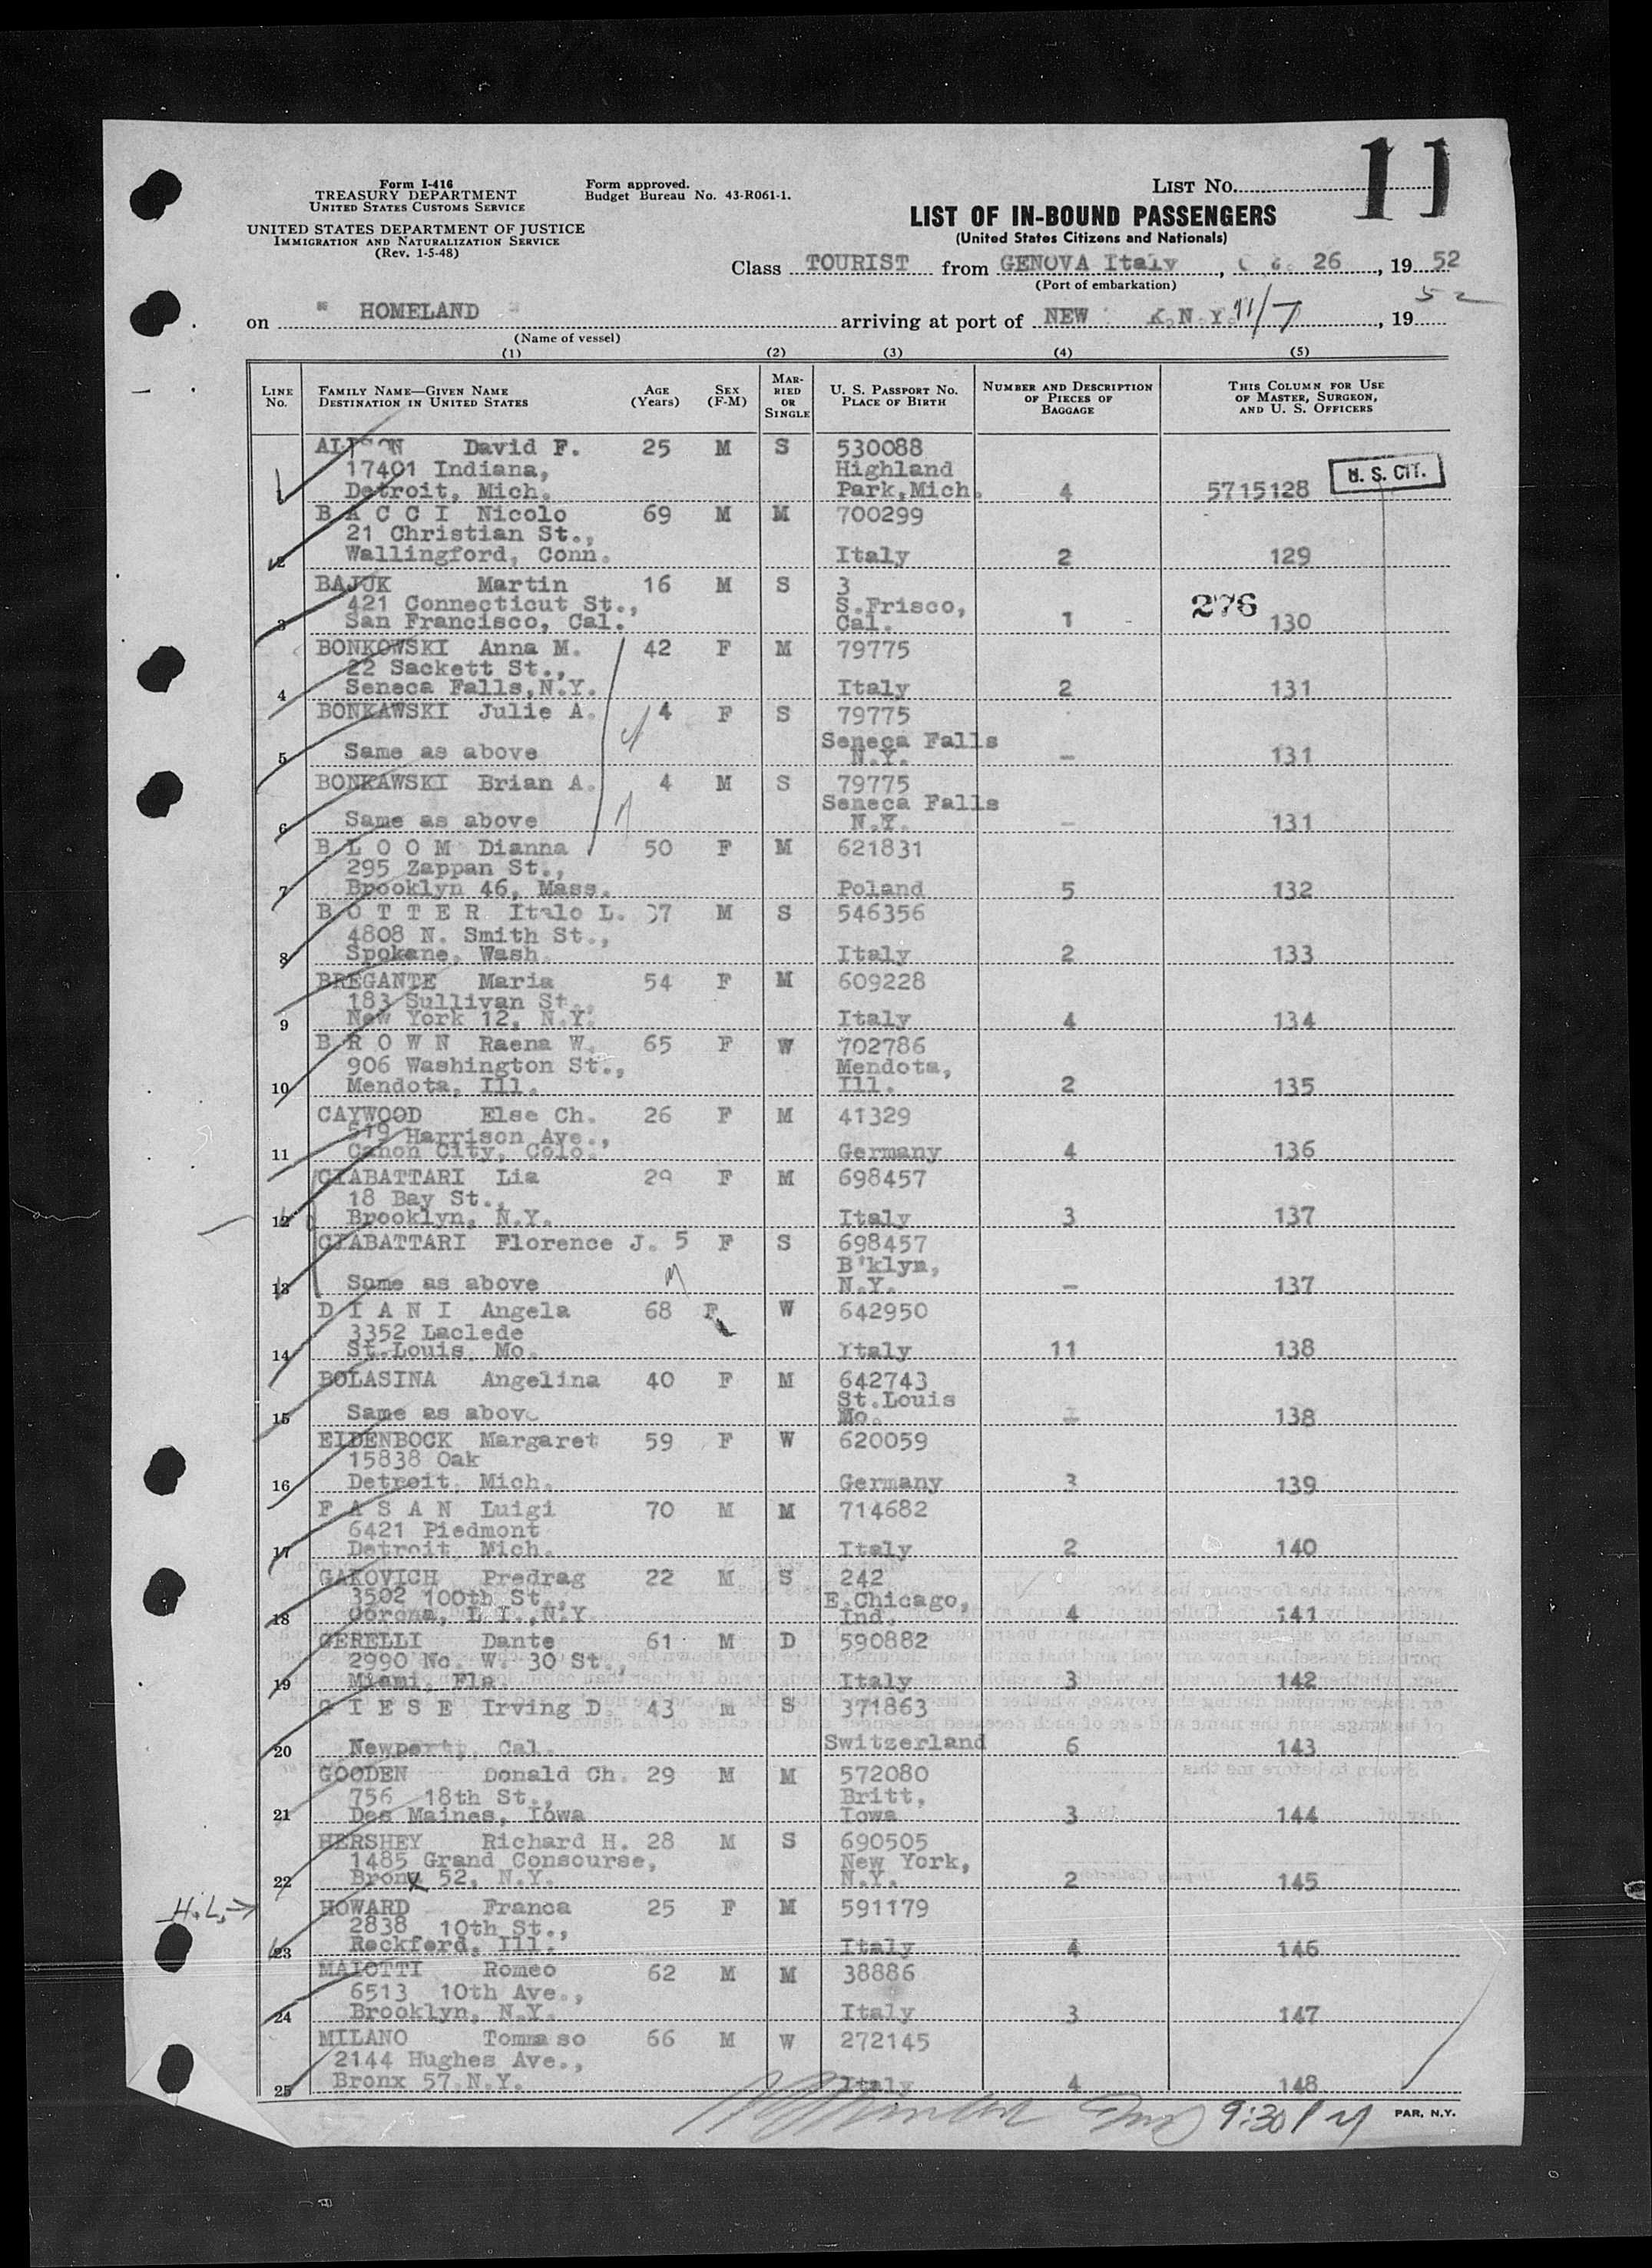 11
Form I-416
TREASURY DEPARTMENT
UNITED STATES CUSTOMS SERVICE
UNITED STATES DEPARTMENT OF JUSTICE
IMMIGRATION AND NATURALIZATION SERVICE
(Rev. 1-5-48)
Form approved.
Budget Bureau No. 43-R061-1.
LIST No.
LIST OF IN-BOUND PASSENGERS
(United States Citizens and Nationals)
Class TOURIST from GENOVA Italy, 26, 19 52
(Port of embarkation)
on " HOMELAND " arriving at port of NEW K.N.Y. 11/7, 19 52
(Name of vessel)
(1) (2) (3) (4) (5)
LINE No. FAMILY NAME—GIVEN NAME DESTINATION IN UNITED STATES AGE (Years) SEX (F-M) MARRIED OR SINGLE U. S. PASSPORT No. PLACE OF BIRTH NUMBER AND DESCRIPTION OF PIECES OF BAGGAGE THIS COLUMN FOR USE OF MASTER, SURGEON, AND U. S. OFFICERS
David F. 25 M S 530088
17401 Indiana, Highland
Detroit, Mich. Park,Mich. 4 5715128 U. S. CIT.
B A C C I Nicolo 69 M M 700299
21 Christian St.,
2 Wallingford, Conn. Italy 2 129
BAJUK Martin 16 M S 3
421 Connecticut St., S.Frisco,
3 San Francisco, Cal. Cal. 1 276 130
BONKOWSKI Anna M. 42 F M 79775
22 Sackett St.,
4 Seneca Falls,N.Y. Italy 2 131
BONKAWSKI Julie A. 4 F S 79775
Seneca Falls
5 Same as above N.Y. — 131
BONKAWSKI Brian A. 4 M S 79775
Seneca Falls
6 Same as above N.Y. — 131
B L O O M Dianna 50 F M 621831
295 Zappan St.,
7 Brooklyn 46, Mass. Poland 5 132
B O T T E R Italo L. 37 M S 546356
4808 N. Smith St.,
8 Spokane, Wash. Italy 2 133
BREGANTE Maria 54 F M 609228
183 Sullivan St.,
9 New York 12, N.Y. Italy 4 134
B R O W N Raena W. 65 F W 702786
906 Washington St., Mendota,
10 Mendota, Ill. Ill. 2 135
CAYWOOD Else Ch. 26 F M 41329
519 Harrison Ave.,
11 Canon City, Colo. Germany 4 136
CIABATTARI Lia 29 F M 698457
18 Bay St.,
12 Brooklyn, N.Y. Italy 3 137
CIABATTARI Florence J. 5 F S 698457
B'klyn,
13 Same as above N.Y. — 137
D I A N I Angela 68 F W 642950
3352 Laclede
14 St.Louis, Mo. Italy 11 138
BOLASINA Angelina 40 F M 642743
St.Louis
15 Same as above Mo. 138
EIDENBOCK Margaret 59 F W 620059
15838 Oak
16 Detroit, Mich. Germany 3 139
F A S A N Luigi 70 M M 714682
6421 Piedmont
17 Detroit, Mich. Italy 2 140
GAKOVICH Predrag 22 M S 242
3502 100th St., E.Chicago,
18 Corona, L.I.,N.Y. Ind. 4 141
GERELLI Dante 61 M D 590882
2990 No. W. 30 St.,
19 Miami, Fla. Italy 3 142
G I E S E Irving D. 43 M S 371863
20 Newport, Cal. Switzerland 6 143
GOODEN Donald Ch. 29 M M 572080
756 18th St., Britt,
21 Des Maines, Iowa Iowa 3 144
HERSHEY Richard H. 28 M S 690505
1485 Grand Consourse, New York,
22 Bronx 52, N.Y. N.Y. 2 145
H.L. → HOWARD Franca 25 F M 591179
2838 10th St.,
23 Rockford, Ill. Italy 4 146
MAIOTTI Romeo 62 M M 38886
6513 10th Ave.,
24 Brooklyn, N.Y. Italy 3 147
MILANO Tommaso 66 M W 272145
2144 Hughes Ave.,
25 Bronx 57,N.Y. Italy 4 148
9:30 PM PAR, N.Y.